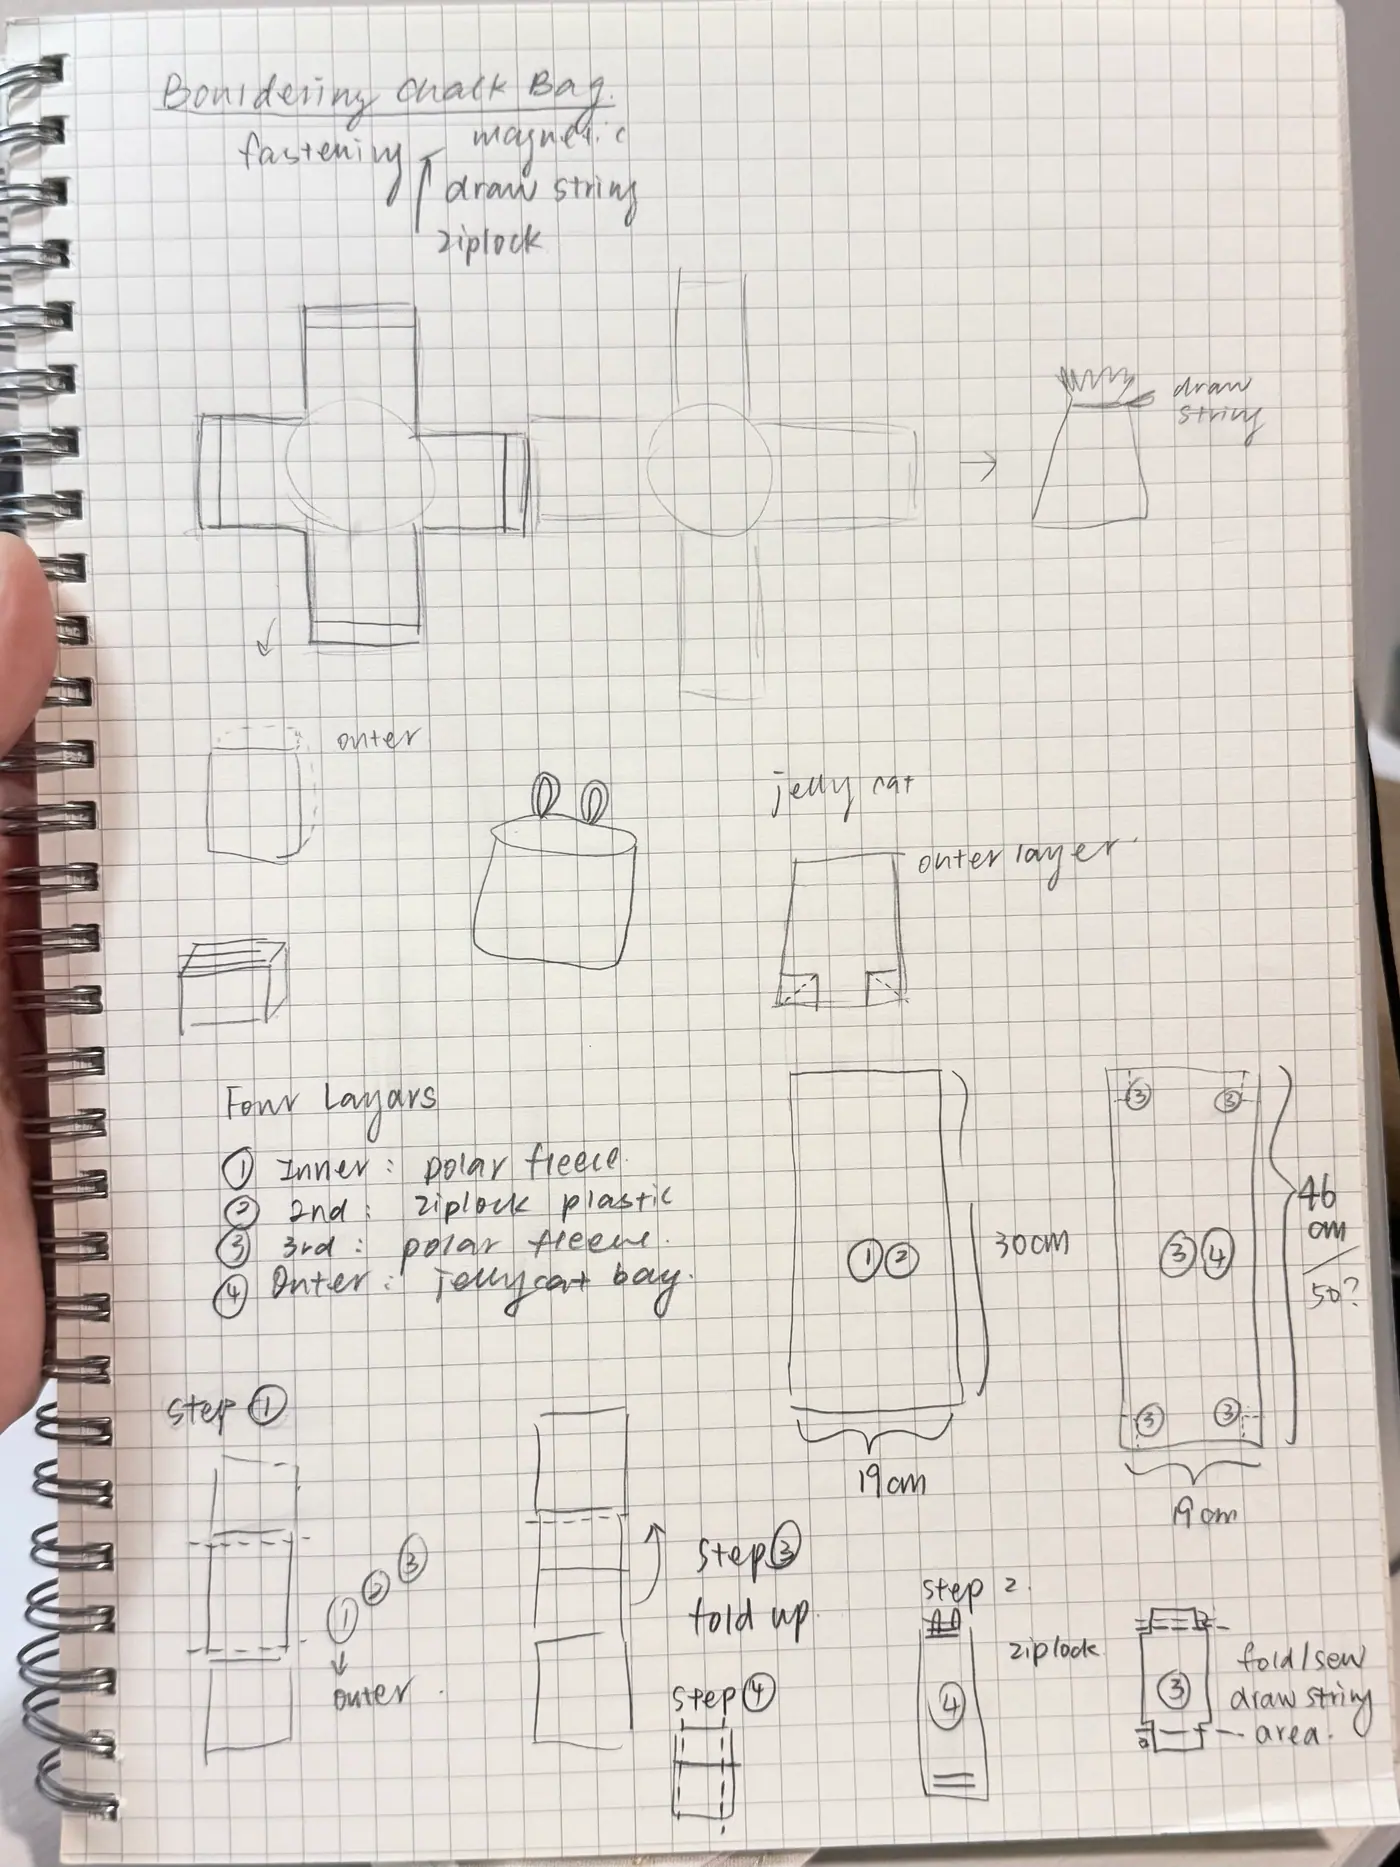 Bouldering Chalk Bag.
fastening - magnetic
draw string
ziplock
draw
string
outer
jelly cat
outer layer.
Four Layars
① Inner: polar fleece.
② 2nd: ziplock plastic
③ 3rd: polar fleece.
④ Outer: jellycat bag.
①②
30cm
19cm
③ ③
③④
46
cm
50?
③ ③
19cm
step ①
① ② ③
outer.
step ③
fold up.
step ④
step 2.
④
ziplock
③
fold/sew
draw string
area.